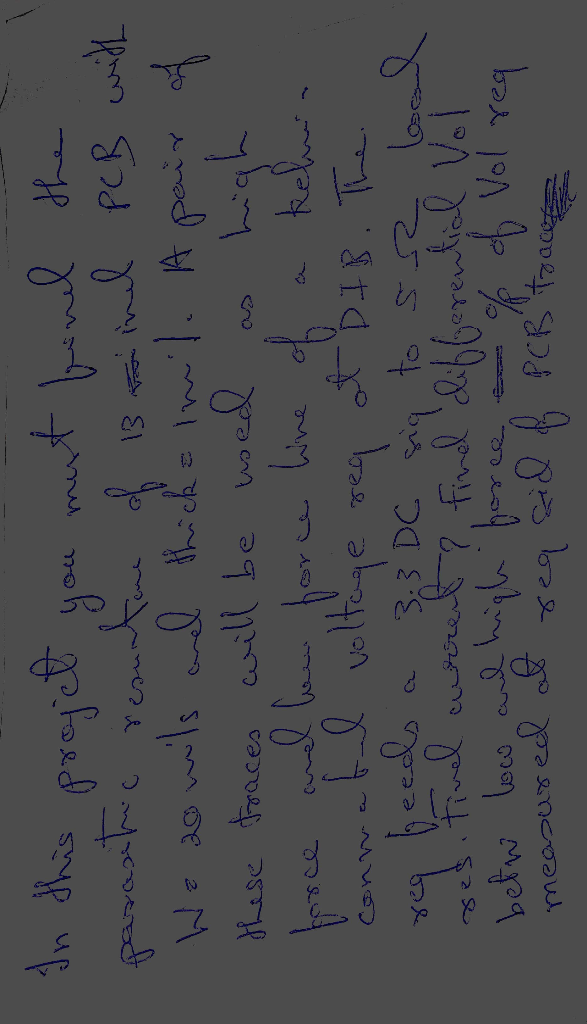 In this project you must find the
parasitic resistance of 13 inch PCB with
W = 20 mils and thick = 1 mil. A pair of
these traces will be used as high
force and low force line of a kelvin
conn a voltage reg at DIB. The
reg feeds a 3.3 DC sig to 5 Ω load
res. Find current? Find differential Vol
betn low and high force of Vol reg
measured at reg of PCB trace